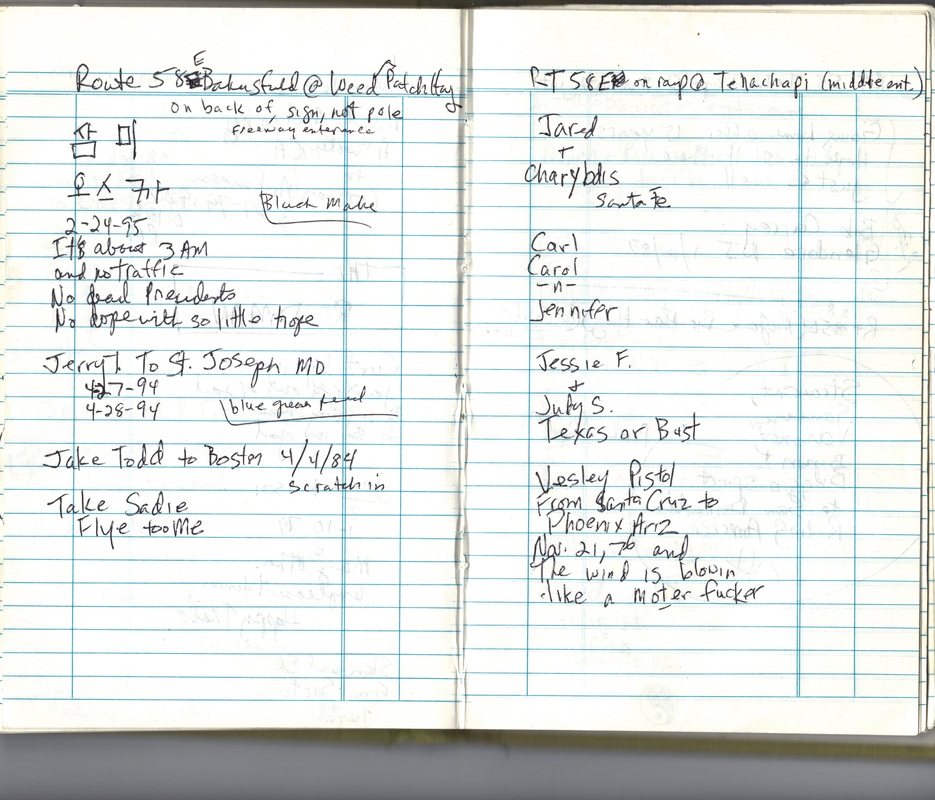 Route 58 E Bakersfield @ Weed Patch Hwy
on back of sign, not pole
freeway enterence
삼 미
오 스 카
Black Make
2-24-95
It's about 3 AM
and no traffic
No dead Presidents
No dope with so little hope
Jerry T. To St. Joseph MO
4-27-94
4-28-94
blue green
Jake Todd to Boston 4/4/84
Scratch in
Take Sadie
Flye too Me
RT 58 E on ramp @ Tehachapi (middle ent.)
Jared
+
Charybdis
Santa Fe
Carl
Carol
-n-
Jennifer
Jessie F.
&
Judy S.
Texas or Bust
Vesley Pistol
From Santa Cruz to
Phoenix Ariz
Nov. 21, 76 and
The wind is blowin
like a moter fucker